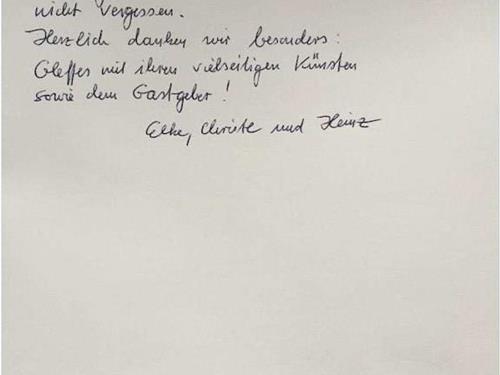 nicht vergessen.
Herzlich danken wir besonders:
Gleffes mit ihren vielseitigen Künsten
sowie dem Gastgeber!
Elke, Christl und Heinz